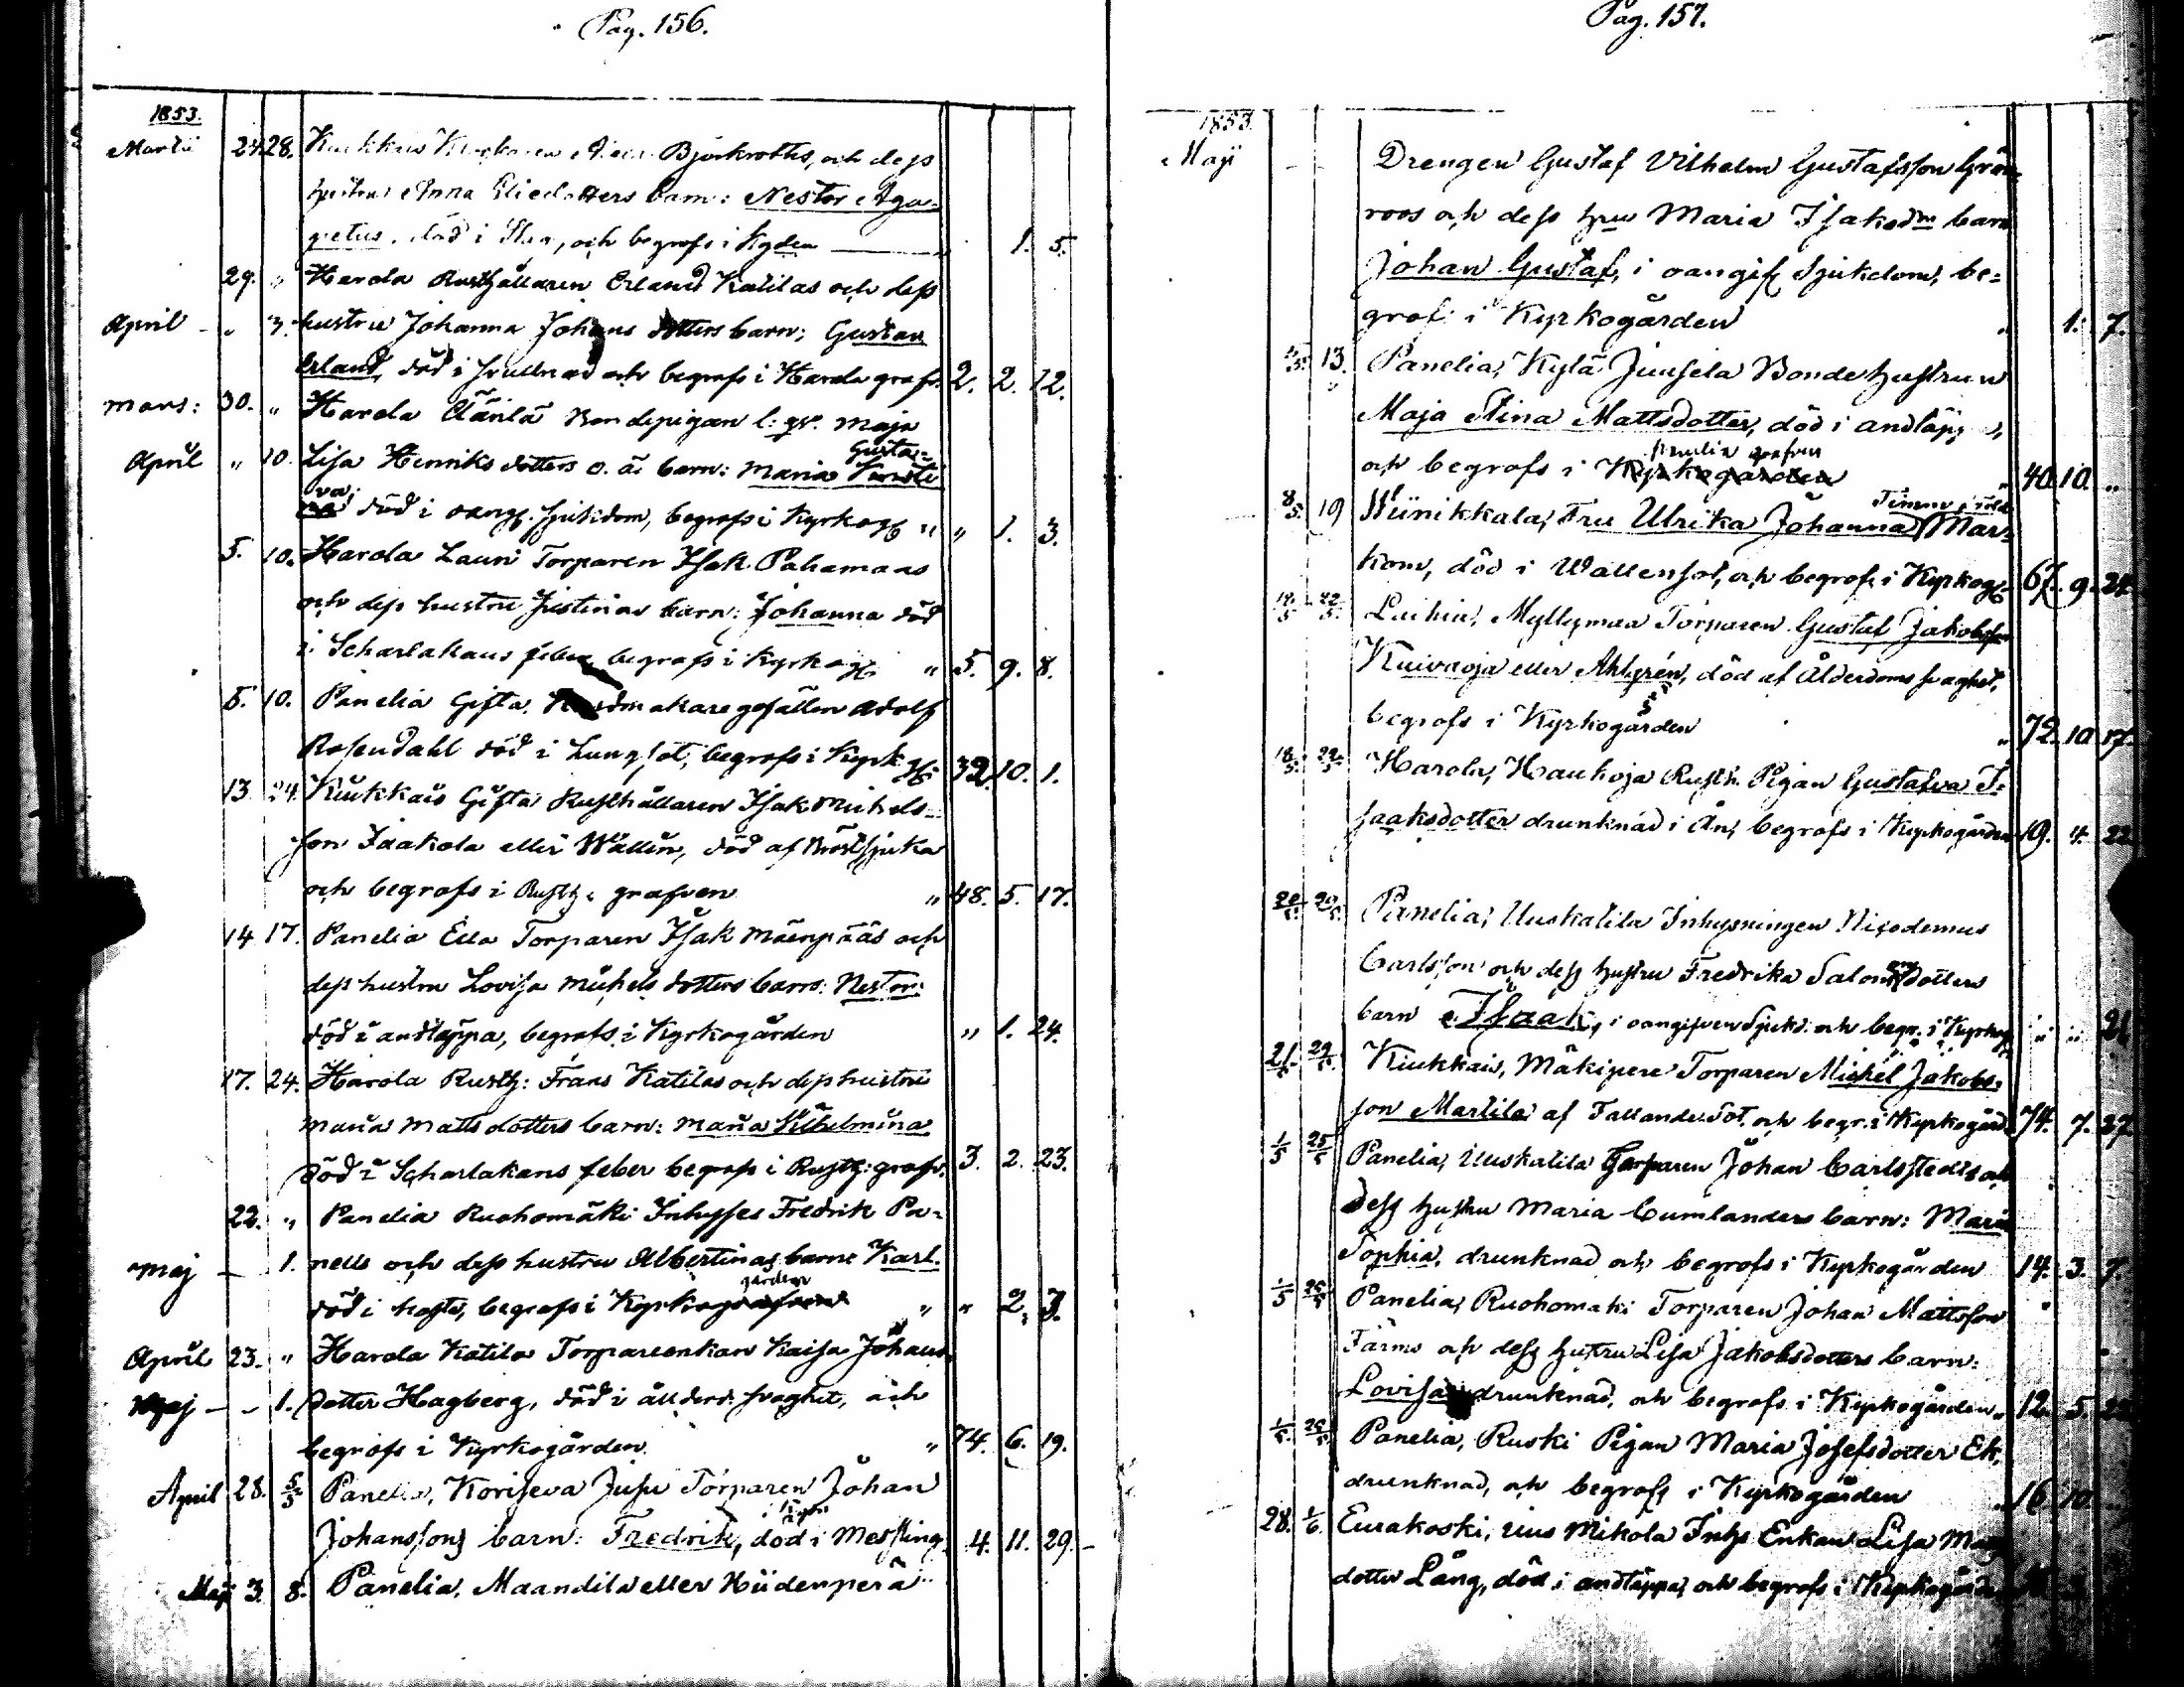 Pag. 156.
1853.
Martii 24. 28. Kiukkais Björkroths, och dess
hustrus Anna Eliedotters barn: Nestor Aga-
petus, död i Slag, och begrofs i Kgden 1. 5.
29. " Harola Rusthållaren Erland Katilas och dess
April - " 3. hustru Johanna Johans dotters barn; Gustav
Erland, död i och begrofs i Harola graf. 2. 2. 12.
Mars: 30. " Harola Bondepigan Maja
April " 10. Lisa Henriks dotters o. ä. barn: Maria Gusta-
va; död i oang. sjukdom, begrofs i Kyrkog " " 1. 3.
5. 10. Harola Lauri Torparen Isak Pahamaas
och dess hustru Justinas barn: Johanna död
i Scharlakans feber begrofs i Kyrkog " 5. 9. 8.
5. 10. Panelia Gifta gesällen Adolf
Rosendahl död i Lungsot, begrofs i Kyrk 32. 10. 1.
13. 24. Kiukkais Gifta Rusthållaren Isak Michels-
son Jaakola eller Wallin, död af Bröstsjuka
och begrofs i Rusth: grafven " 48. 5. 17.
14 17. Panelia Eela Torparen Isak Mäenpääs och
dess hustru Lovisa Michels dotters barn: Nestor:
död i andtäppa, begrofs i Kyrkogården " 1. 24.
17. 24. Harola Rusth: Frans Katilas och dess hustru
Maria Matts dotters barn: Maria Vilhelmina
död i Scharlakans feber begrofs i Rusth: grafv. 3. 2. 23.
22. " Panelia Ruohomäki Inhyses Fredrik Pa-
Maj - 1. nells och dess hustru Albertinas barn: Karl.
död i hosta, begrofs i Kyrkogården " " 2. 3.
April 23. " Harola Katila Torpareenkan Kaisa Johans
Maj - - 1. dotter Hagberg, död i ålderd. svaghet, och
begrofs i Kyrkogården. " 74. 6. 19.
April 28. 5/5 Panelia, Koriseva Jusu Torparen Johan
Johanssons barn: Fredrik, död i Messling 4. 11. 29.
Maji 3. 8. Panelia, Maandila eller Hiidenperä
Pag. 157.
1853.
Maji Drengen Gustaf Vilhelm Gustafsson Grön-
roos och dess hru Maria Isaksdrs barn
Johan Gustaf, i oangif Sjukdom, be-
grof: i Kyrkogården " 1. 7.
13. Panelia, Kylä Juusela Bondehustrun
Maja Stina Mattsdotter, död i andtäp
och begrofs i Kyrkogården Panelia grafven " 40. 10. "
8/5. 19 Niinikkala, Fru Ulrika Johanna Mar-
kom, död i Wattensot, och begrofs i Kyrkog. 67. 9. 24.
14/5 22/5. Laihia, Myllymaa Torparen Gustaf Jakobsson
Kuivaoja eller Ahlgrén, död af Ålderdoms svaghet,
begrofs i Kyrkogården " 72. 10 17.
18/5. 22/5. Harola, Haukoja Rusth. Pigan Gustafva I-
saaksdotter drunknad i Ån, begrofs i Kyrkogården 19. 4. 22
Panelia, Uuskatila Inhysningen Nicodemus
Carlsson och dess hustru Fredrika Salomonsdotters
barn Isaak, i oangifven Sjukd. och begr. i Kyrkog " " 21
21/5. 29/5. Kiukkais, Mäkipere Torparen Michel Jakobs-
son Martila af Fallande Sot. och begr. i Kyrkogård 74. 7. 27
1/5 25/5 Panelia, Uuskatila Torparen Johan Carlstedts och
dess hustru Maria Cumlanders barn: Maria
Sophia, drunknad och begrofs i Kyrkogården 14. 3. 7.
1/5 25/5 Panelia, Ruohomaki Torparen Johan Mattsson
Färms och dess hustru Lisa Jakobsdotters barn:
Lovisa drunknad, och begrofs i Kyrkogården " 12. 5. 22
1/5. 25/5 Panelia, Ruski Pigan Maria Josefsdotter Ek,
drunknad, och begrofs i Kyrkogården " 16 10
28. 1/6. Eurakoski, Uus Mikola Inhs Enkan Lisa
dotter Lång, död i andtäppa, och begrofs i Kyrkogården